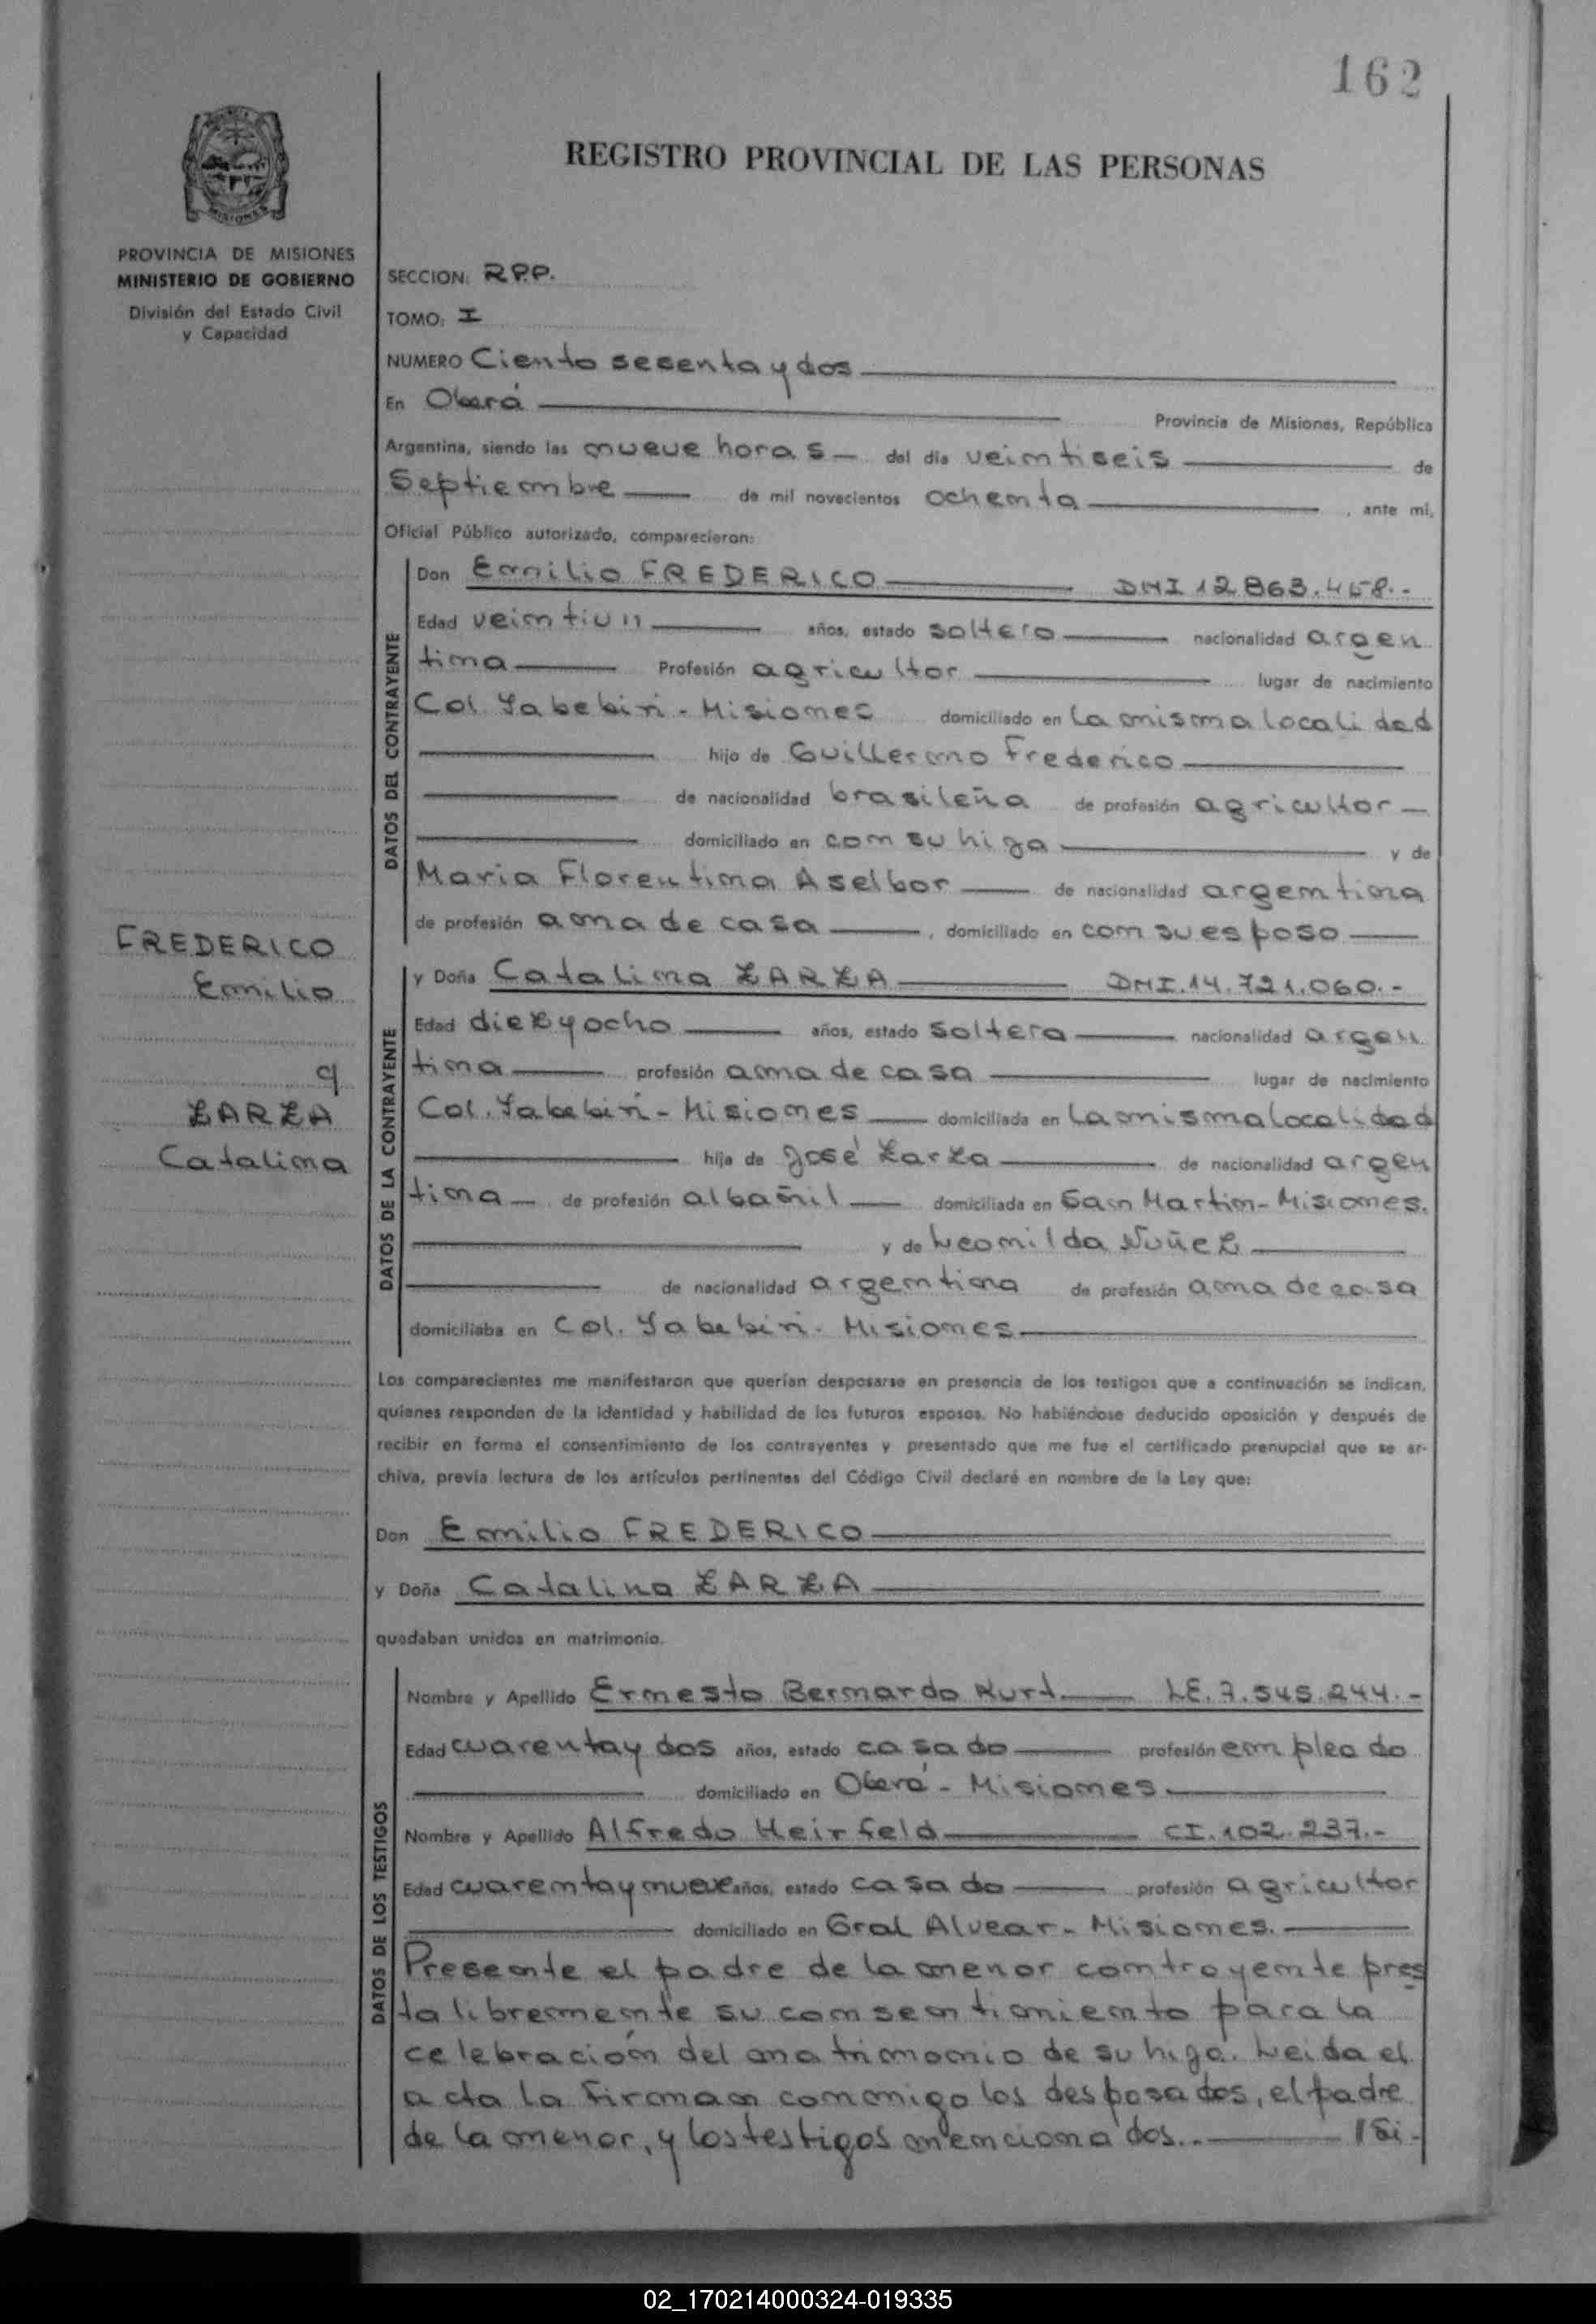 162
REGISTRO PROVINCIAL DE LAS PERSONAS
MISIONES
PROVINCIA DE MISIONES
MINISTERIO DE GOBIERNO
División del Estado Civil
y Capacidad
SECCION: R.P.P.
TOMO: I
NUMERO Ciento sesenta y dos
En Oberá Provincia de Misiones, República
Argentina, siendo las nueve horas del día veintiseis de
Septiembre de mil novecientos ochenta, ante mi,
Oficial Público autorizado, comparecieron:
DATOS DEL CONTRAYENTE
Don Emilio FREDERICO DNI 12.863.458.-
Edad veintiun años, estado soltero nacionalidad argen
tina Profesión agricultor lugar de nacimiento
Col. Yabebiri - Misiones domiciliado en la misma localidad
hijo de Guillermo Frederico
de nacionalidad brasileña de profesión agricultor
domiciliado en con su hijo y de
Maria Florentina Aselbor de nacionalidad argentina
de profesión ama de casa, domiciliado en con su esposo
FREDERICO
Emilio
y
ZARZA
Catalina
DATOS DE LA CONTRAYENTE
y Doña Catalina ZARZA DNI.14.721.060.-
Edad diez y ocho años, estado soltera nacionalidad argen
tina profesión ama de casa lugar de nacimiento
Col. Yabebiri - Misiones domiciliada en la misma localidad
hija de José Zarza de nacionalidad argen
tina de profesión albañil domiciliada en San Martin - Misiones.
y de Leonilda Nuñez
de nacionalidad argentina de profesión ama de casa
domiciliaba en Col. Yabebiri - Misiones
Los comparecientes me manifestaron que querían desposarse en presencia de los testigos que a continuación se indican,
quienes responden de la identidad y habilidad de los futuros esposos. No habiéndose deducido oposición y después de
recibir en forma el consentimiento de los contrayentes y presentado que me fue el certificado prenupcial que se ar-
chiva, previa lectura de los artículos pertinentes del Código Civil declaré en nombre de la Ley que:
Don Emilio FREDERICO
y Doña Catalina ZARZA
quedaban unidos en matrimonio.
DATOS DE LOS TESTIGOS
Nombre y Apellido Ernesto Bernardo Kurt LE.7.545.244.-
Edad cuarenta y dos años, estado casado profesión empleado
domiciliado en Oberá - Misiones
Nombre y Apellido Alfredo Heirfeld CI.102.237.-
Edad cuarenta y nueve años, estado casado profesión agricultor
domiciliado en Gral Alvear - Misiones.
Presente el padre de la menor contrayente pres
ta libremente su consentimiento para la
celebración del matrimonio de su hija. Leida el
acta la firman conmigo los desposados, el padre
de la menor, y los testigos mencionados..
02_170214000324-019335